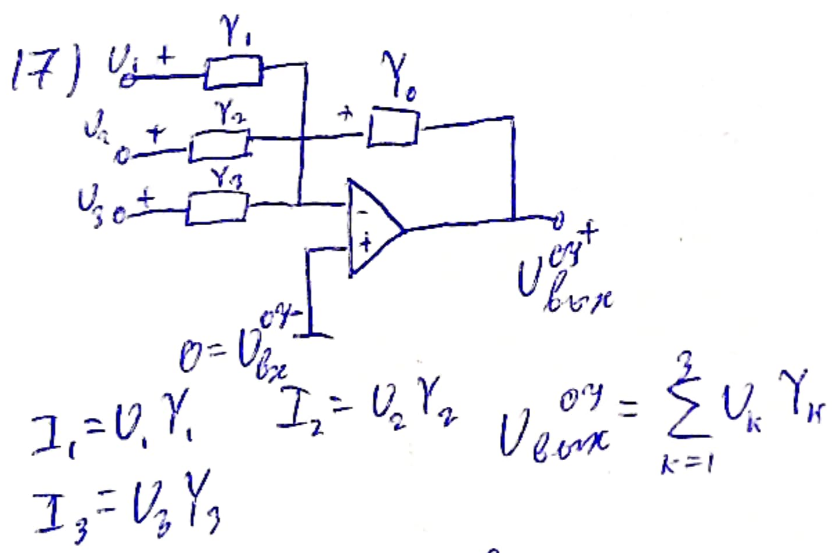 17) U₁ + Y₁
Y₀
U₂ + Y₂ +
U₃ + Y₃
-
+
U вых ОУ +
0 = U вх ОУ-
I₁ = U₁ Y₁ I₂ = U₂ Y₂ U вых ОУ = ∑ k=1 3 Uₖ Yₖ
I₃ = U₃ Y₃